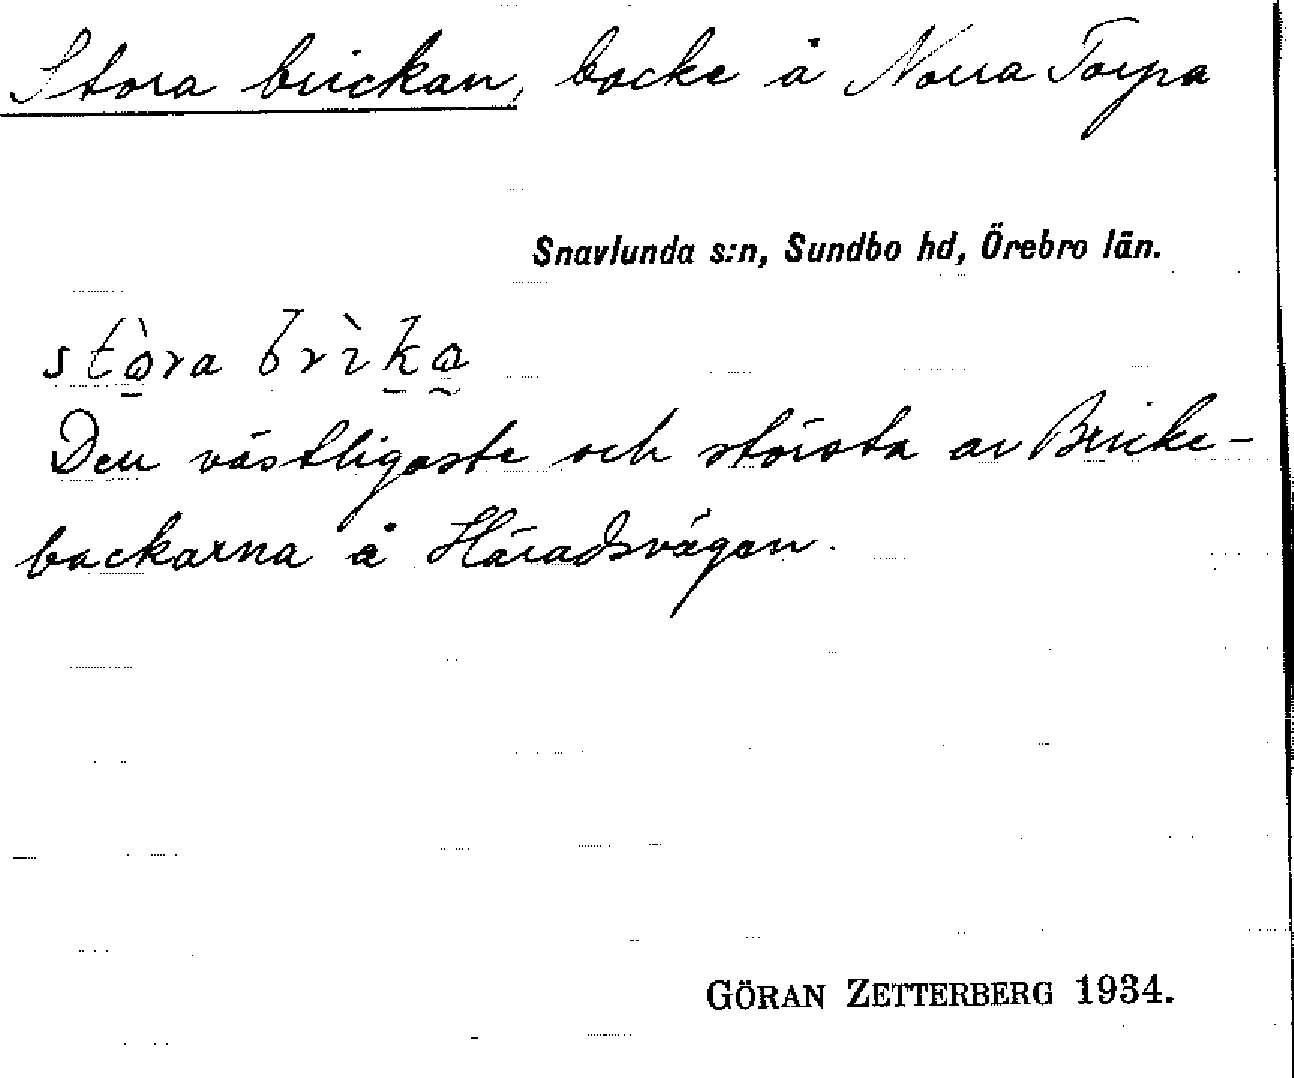 Stora brickan, backe å Norra Torpa
Snavlunda s:n, Sundbo hd, Örebro län.
stò̱ra brìḵa̰
Den västligaste och största av Bricke-
backarna å Häradsvägen.
GÖRAN ZETTERBERG 1934.